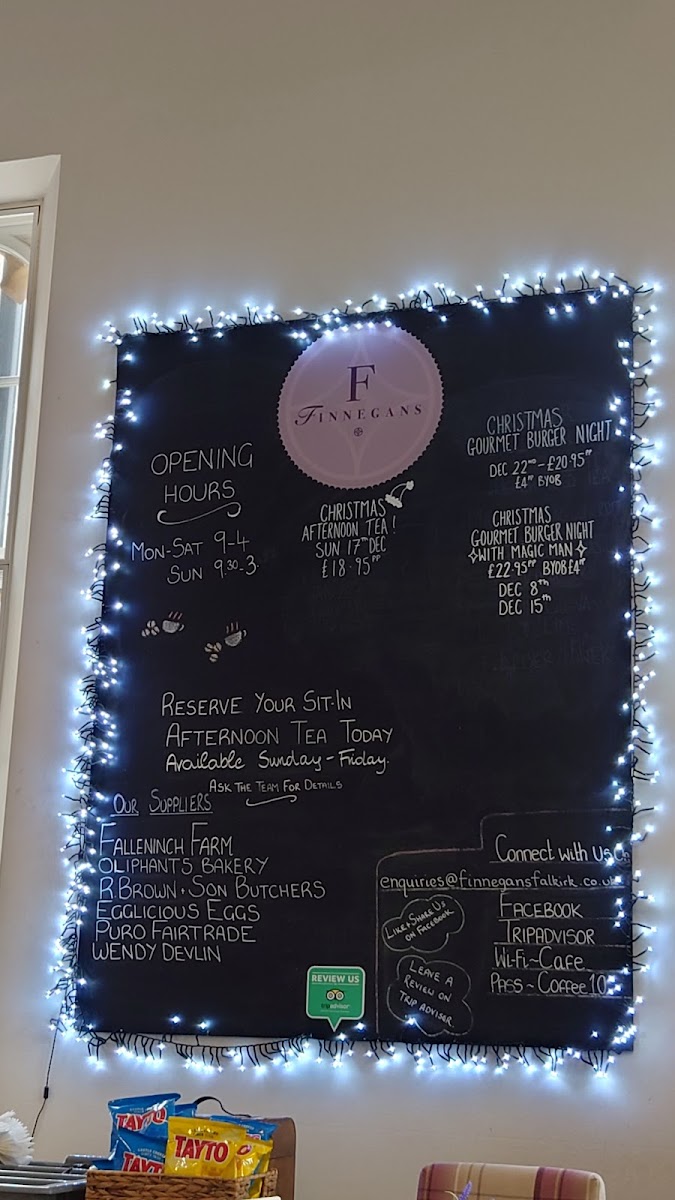 F
FINNEGANS
OPENING
HOURS
MON-SAT 9-4
SUN 9.30-3.
CHRISTMAS
AFTERNOON TEA!
SUN 17TH DEC
£18.95PP
CHRISTMAS
GOURMET BURGER NIGHT
DEC 22ND - £20.95PP
£4PP BYOB
CHRISTMAS
GOURMET BURGER NIGHT
WITH MAGIC MAN
£22.95PP BYOB £4PP
DEC 8TH
DEC 15TH
RESERVE YOUR SIT-IN
AFTERNOON TEA TODAY
Available Sunday - Friday.
ASK THE TEAM FOR DETAILS
OUR SUPPLIERS
FALLENINCH FARM
OLIPHANTS BAKERY
R.BROWN + SON BUTCHERS
EGGLICIOUS EGGS
PURO FAIRTRADE
WENDY DEVLIN
Connect with us
enquiries@finnegansfalkirk.co.uk
LIKE + SHARE US
ON FACEBOOK
FACEBOOK
TRIPADVISOR
Wi-Fi ~ Cafe
Pass ~ Coffee10
LEAVE A
REVIEW ON
TRIP ADVISER.
REVIEW US
tripadvisor
TAYTO
TAYTO
TAYTO